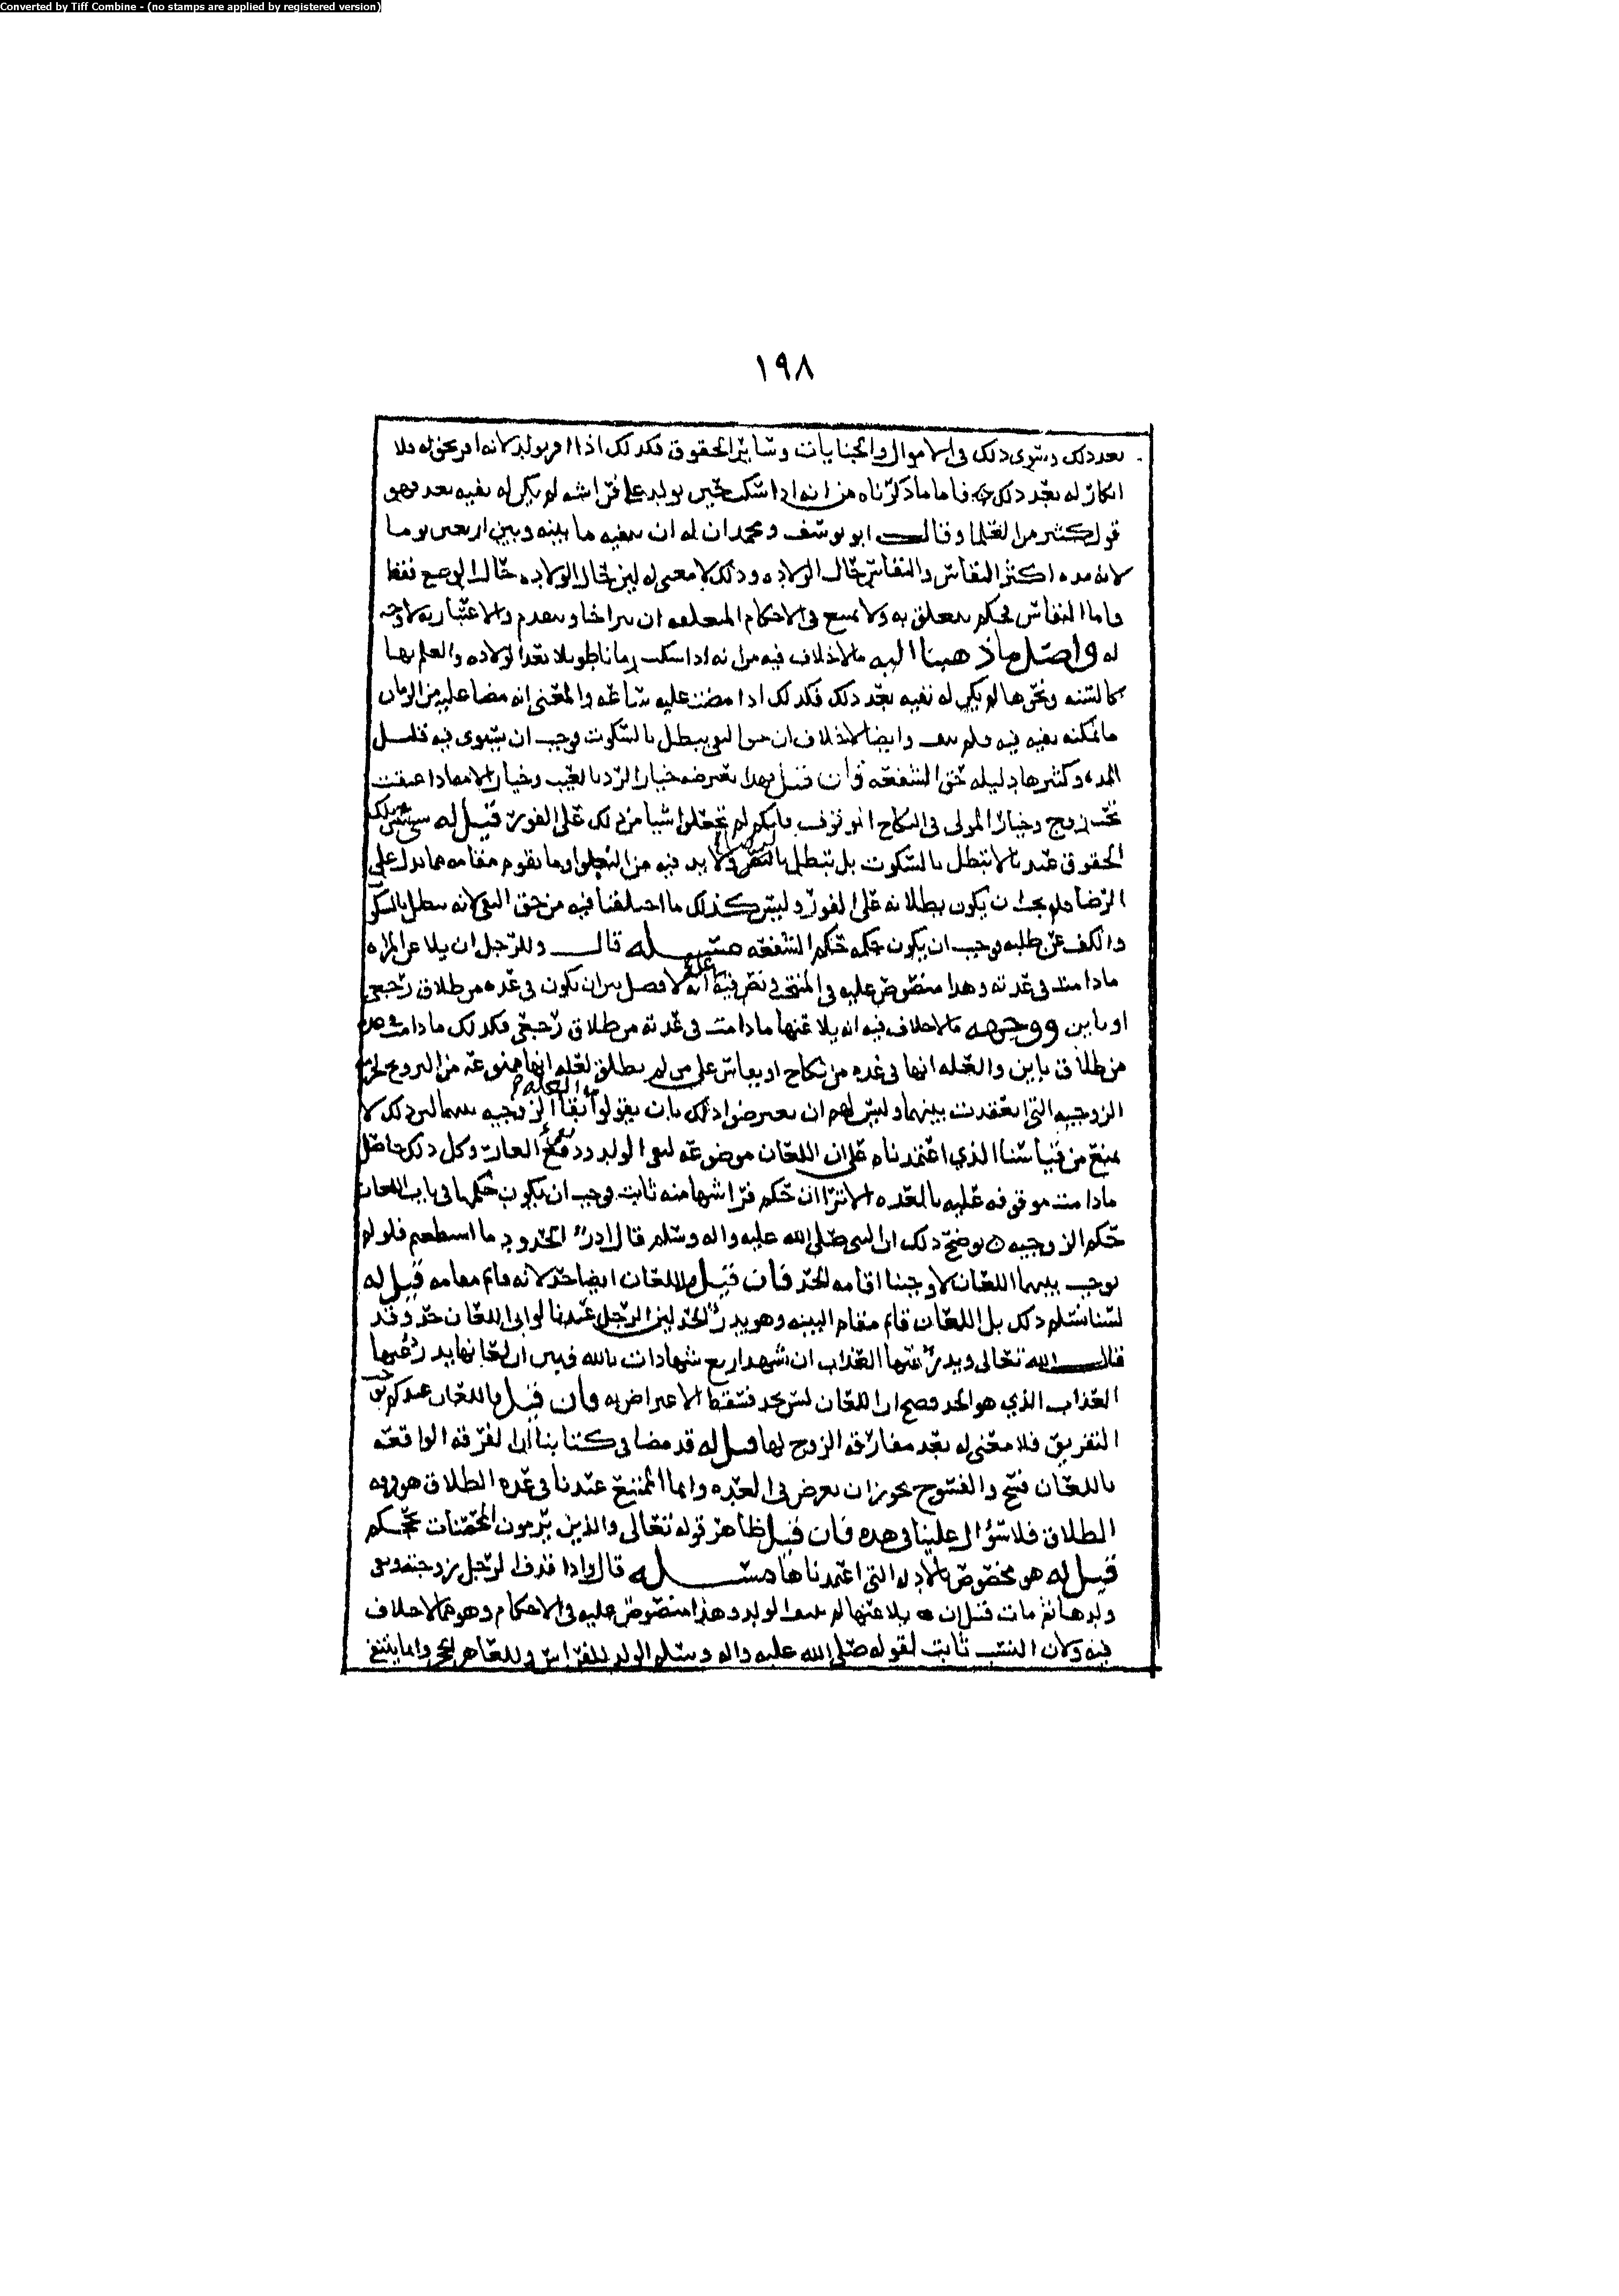 Converted by Tiff Combine - (no stamps are applied by registered version)
١٩٨
بعد ذلك ويستوي ذلك في الاموال والجنايات وسائر الحقوق فكذلك اذا اقر بولد لانه اقر بحق له ولا
انكار له بعد ذلك فاما ما ذكرناه من انه اذا سكت حين يولد على فراشه لم يكن له نفيه بعد فهو
قول كثير من العلما وقال ابو يوسف ومحمد ان له ان ينفيه ما بينه وبين اربعين يوما
لانه مده اكثر النفاس والنفاس حال الولاده وذلك لا معنى له لين حال الولاده حال الوضع فقط
واما النفاس فحكم يتعلق به ولا يمنع في الاحكام المتعلقه ان يتراخا ويتقدم والاعتبار به لا وجه
له واصل ما ذهبنا اليه مالا خلاف فيه من انه اذا سكت زمانا طويلا بعد الولاده والعلم بها
كالسنه ونحوها لم يكن له نفيه بعد ذلك فكذلك اذا مضت عليه ساعه والمعنى انه مضا عليه من الزمان
ما يمكنه نفيه فيه فلم ينف وايضا لا خلاف ان حق النفي يبطل بالسكوت فوجب ان يستوي فيه قليل
المده وكثيرها دليله حق الشفعه فان قيل فهذا يعترضه خيار الرد بالعيب وخيار الامه اذا عتقت
تحت زوج وخيار المولى في النكاح الموقوف فانكم لم تجعلوا شيا من ذلك على الفور قيل له تلك
الحقوق عندنا لا تبطل بالسكوت بل تبطل ولا بد فيه من القول او ما يقوم مقامه مما يدل على
الرضا فلم يجب ان يكون بطلانه على الفور وليس كذلك ما اختلفنا فيه من حق النفي لانه يبطل بالسكوت
والكف عن طلبه فوجب ان يكون حكمه حكم الشفعه مسله قال وللرجل ان يلاعن المراه
ما دامت في عدته وهذا منصوص عليه في المنتخب ونص فيه على انه لا فصل بين ان تكون في عده من طلاق رجعي
او باين ووجهه مالا خلاف فيه انه يلاعنها ما دامت في عدته من طلاق رجعي فكذلك ما دامت في عده
من طلاق باين والعله انها في عده من نكاح او يقاس على من لم يطلق لعله انها ممنوعه من التزويج لحرمه
الزوجيه التي انعقدت بينهما وليس لهم ان يعترضوا ذلك بان يقولوا العله بقا الزوجيه بينهما لين ذلك لا
يمنع من قياسنا الذي اعتمدناه على ان اللعان موضوعه لنفي الولد ودفع العار وكل ذلك حاصل
ما دامت موقوفه عليه بالعده الا ترا ان حكم فراشها منه ثابت فوجب ان يكون حكمها في باب اللعان
حكم الزوجيه يوضح ذلك ان النبي صلى الله عليه واله وسلم قال ادرؤ الحدود ما استطعتم فلو لم
نوجب بينهما اللعان لاوجبنا اقامه الحد فان قيل فاللعان ايضا حد لانه قايم مقامه قيل له
لسنا نسلم ذلك بل اللعان قايم مقام البينه وهو يدرؤ الحد لين الرجل عندنا لو ابى اللعان حد وقد
قال الله تعالى ويدرؤ عنها العذاب ان تشهد اربع شهادات بالله فبين ان لعانها يدرؤ عنها
العذاب الذي هو الحد فصح ان اللعان ليس بحد فسقط الاعتراض به فان قيل فاللعان عندكم يوجب
التفريق فلا معنى له بعد مفارقه الزوج لها قيل له قد مضا في كتابنا ان الفرقه الواقعه
باللعان فسخ والفسوخ يجوز ان يعرض في العده وانما الممتنع عندنا في عده الطلاق هو وقوع
الطلاق فلا سؤال علينا في هذه فان قيل ظاهر قوله تعالى والذين يرمون المحصنات يحجكم
قيل له هو مخصوص بالادله التي اعتمدناها مسله قال واذا قذف الرجل زوجته ونفى
ولدها ثم مات قبل ان يلاعنها لم ينتف الولد وهذا منصوص عليه في الاحكام وهو مما لا خلاف
فيه ولان النسب ثابت لقوله صلى الله عليه واله وسلم الولد للفراش وللعاهر الحجر وانما ينتفي